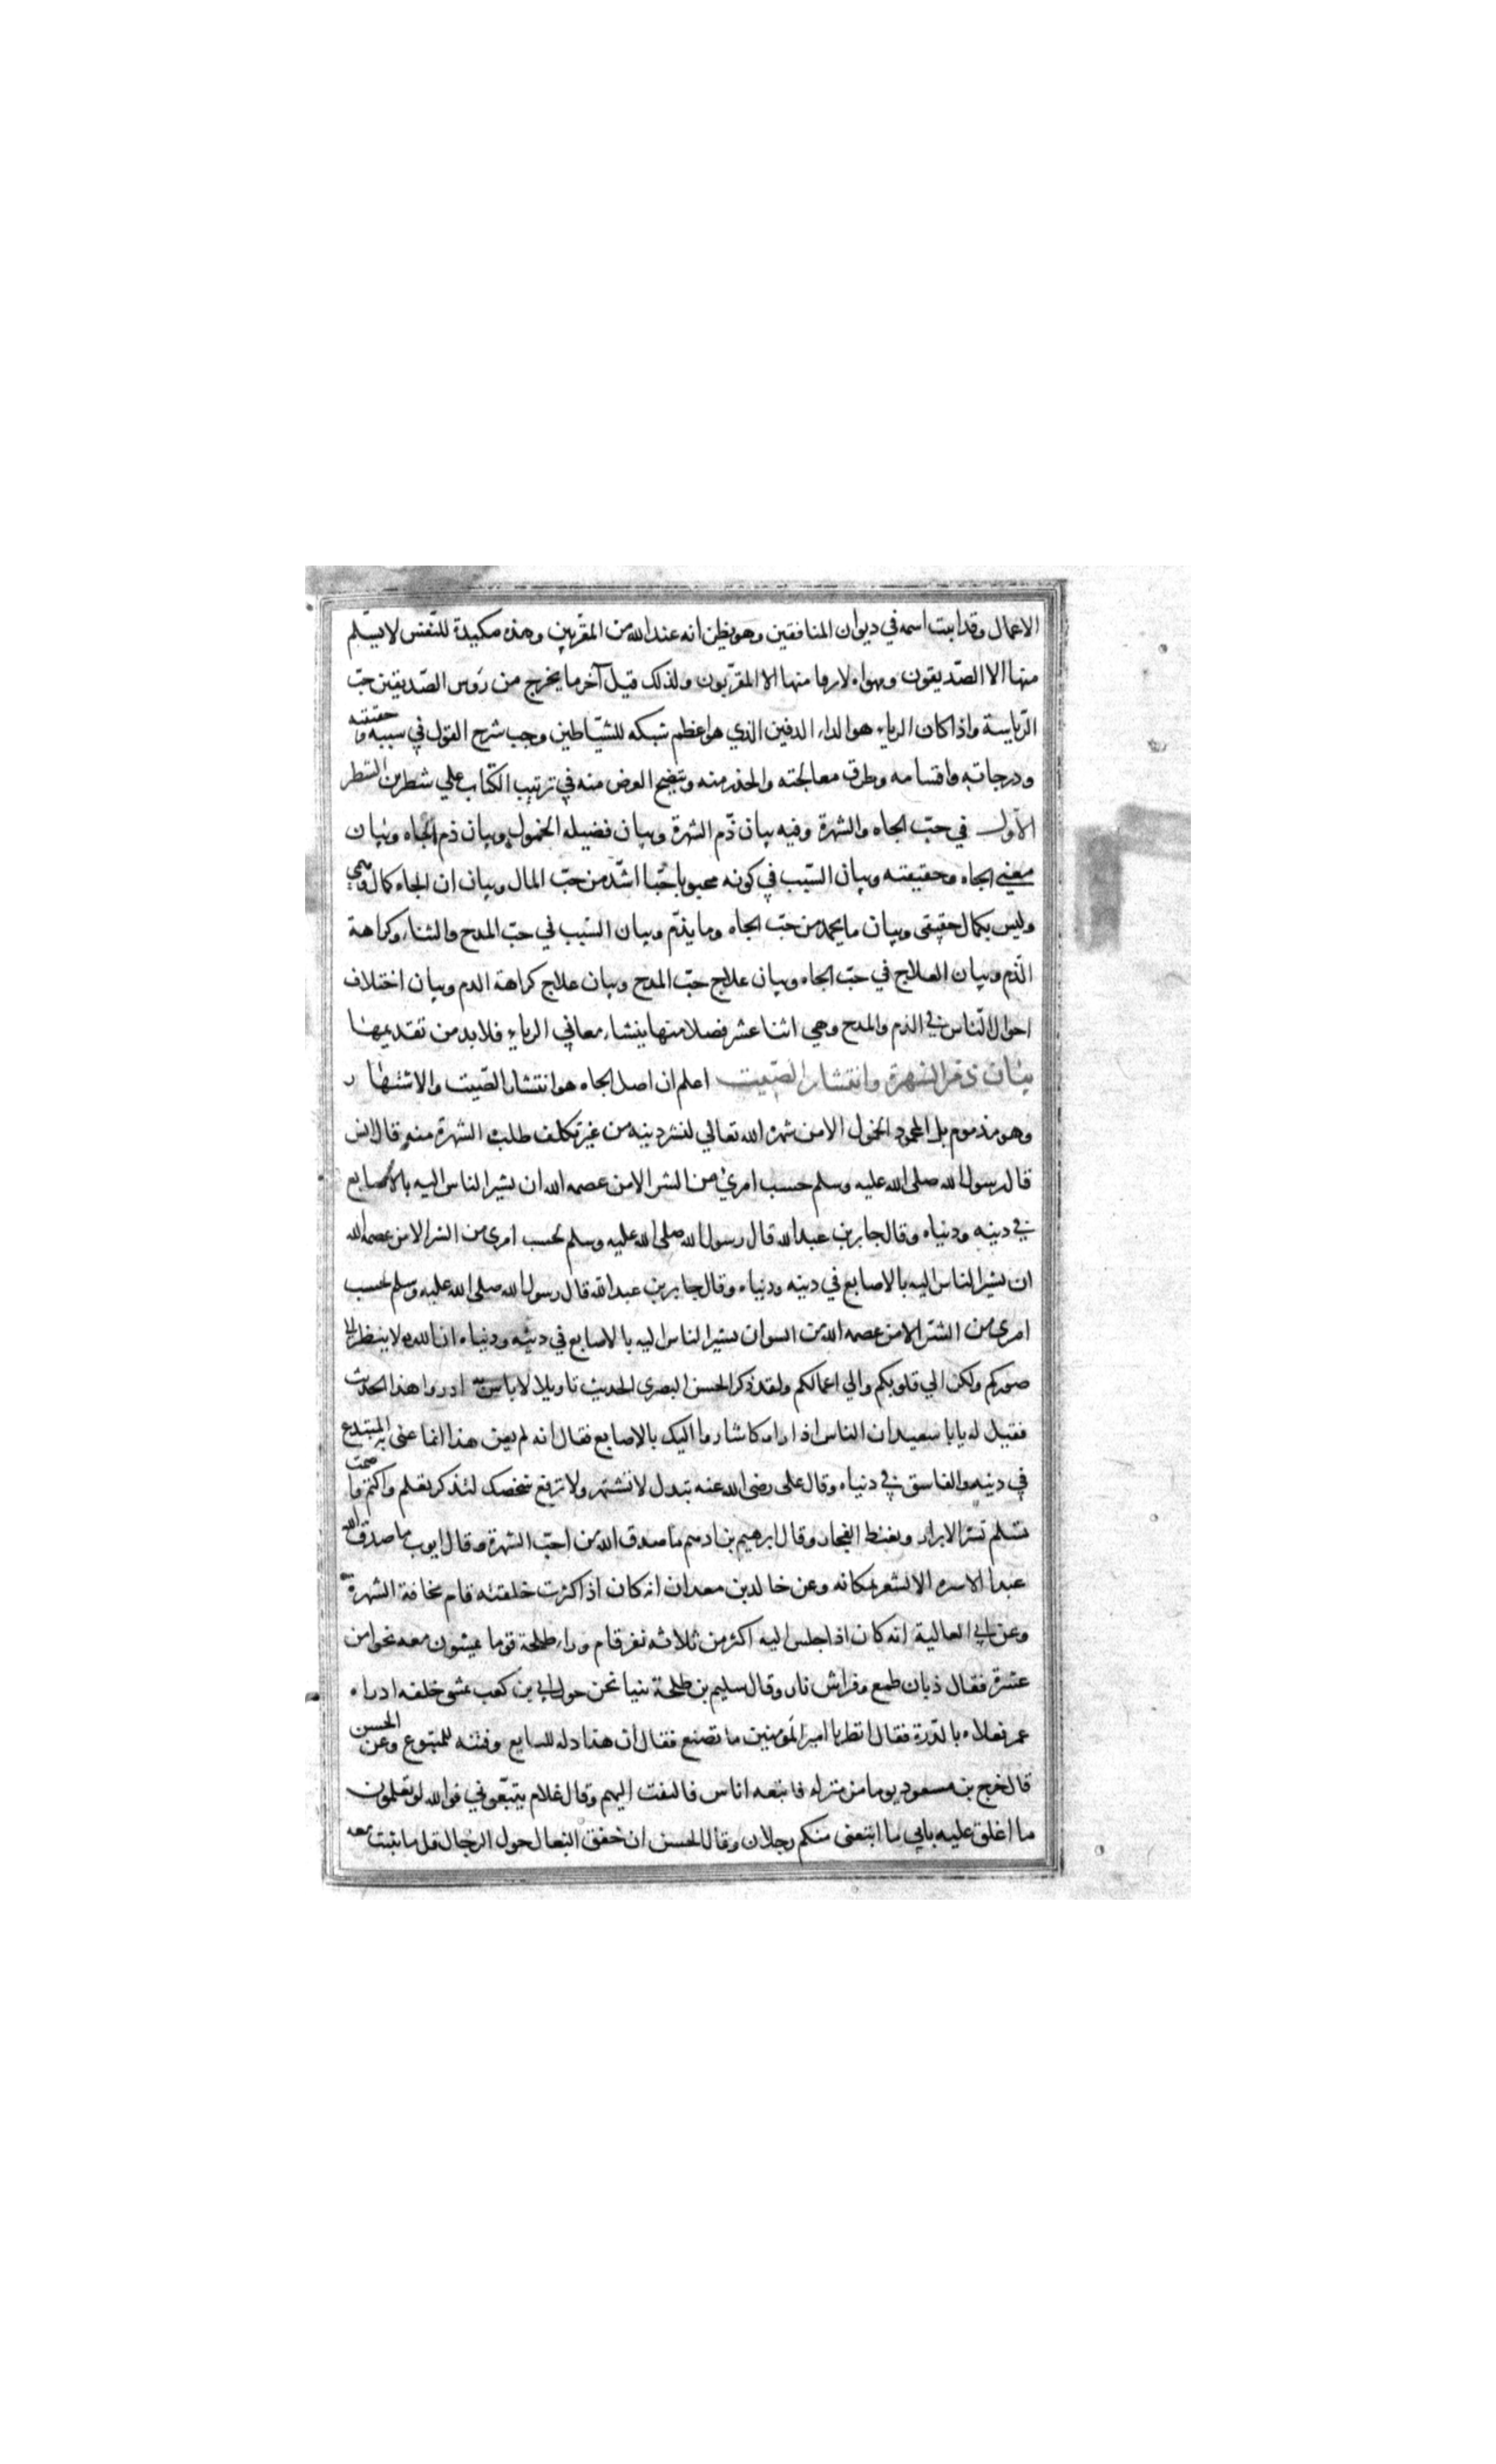 الاعمال وقد اثبت اسمه في ديوان المنافقين وهو يظن انه عند الله من المقربين وهذه مكيدة للنفس لا يسلم
منها الا الصّديقون ومهواه لا رها منها الا المقرّبون ولذلك قيل آخر ما يخرج من رؤس الصّديقين حبّ
الرّياسة واذا كان الرياء هو الداء الدفين الذي هو اعظم شبكه للشّياطين وجب شرح القول في سببه وحقيقته
ودرجاته واقسامه وطرق معالجته والحذر منه ويتضح الغرض منه في ترتيب الكتاب علي شطرين الشطر
الاول في حبّ الجاه والشهرة وفيه بيان ذّم الشهرة وبيان فضيله الخمول وبيان ذم الجاه وبيان
معني الجاه وحقيقته وبيان السّبب في كونه محبوبا حبّا اشدّ من حبّ المال وبيان ان الجاه كمال وهمي
وليس بكمال حقيقي وبيان ما يحمد من حبّ الجاه وما يذّم وبيان السّبب في حبّ المدح والثناء وكراهة
الذّم وبيان العلاج في حبّ الجاه وبيان علاج حبّ المدح وبيان علاج كراهة الدم وبيان اختلاف
احوال الناس في الذم والمدح وهي اثنا عشر فصلا منها ينشاء معاني الرياء فلا بد من تقديمها
بيان ذم الشهرة وانتشار الصّيت اعلم ان اصل الجاه هو انتشار الصّيت والاشتهار
وهو مذموم بل المحمود الخمول الا من شهره الله تعالي لنشر دينه من غير تكلف طلب الشهرة منه قال انس
قال رسول الله صلى الله عليه وسلم حسب امرئ من الشر الا من عصمه الله ان يشير الناس اليه بالاصابع
في دينه ودنياه وقال جابر بن عبدالله قال رسول الله صلى الله عليه وسلم بحسب امرى من الشر الا من عصمه الله
ان يشير الناس اليه بالاصابع في دينه ودنياه وقال جابر بن عبدالله قال رسول الله صلى الله عليه وسلم بحسب
امرى من الشّر الا من عصمه الله من السوان يشير الناس اليه بالاصابع في دينه ودنياه ان الله لا ينظر الى
صوركم ولكن الي قلوبكم والي اعمالكم ولقد ذكر الحسن البصري الحديث تاويلا لا باس به اذ روا هذا الحديث
فقيل له يا با سعيد ان الناس اذا راوك اشاروا اليك بالاصابع فقال انه لم يعن هذا انما عنى به المبتدع
في دينه والفاسق في دنياه وقال على رضى الله عنه تبدل لا تشتهر ولا ترفع شخصك لتذكر تعلم واكتم واصمت
تسلم تسر الابرار وتغيظ الفجار وقال ابرهيم بن ادهم ما صدق الله من احبّ الشهرة وقال ايوب ما صدق الله
عبدا الا سره الا يشعر بمكانه وعن خالد بن معدان انه كان اذا كثرت خلقته قام مخافة الشهرة
وعن ابي العالية انه كان اذا جلس اليه اكثر من ثلاثه نفر قام وراء طلحة قوما يمشون معه نحوا من
عشرة فقال ذبان طمع وفراش نار وقال سليم بن طلحة بينا نحن حول ابي بن كعب نمشى خلفه اذ راه
عمر فعلاه بالدّرة فقال انظر يا امير المؤمنين ما تصنع فقال ان هذا ذله للتابع وفتنه للمتبوع وعن الحسن
قال خرج بن مسعود يوما من منزله فاتبعه اناس فالتفت اليهم وقال علام يتبّعوني فوالله لو تعلمون
ما اغلق عليه بابي ما اتبعني منكم رجلان وقال الحسن ان خفق النعال حول الرجال قل ما يثبت معه